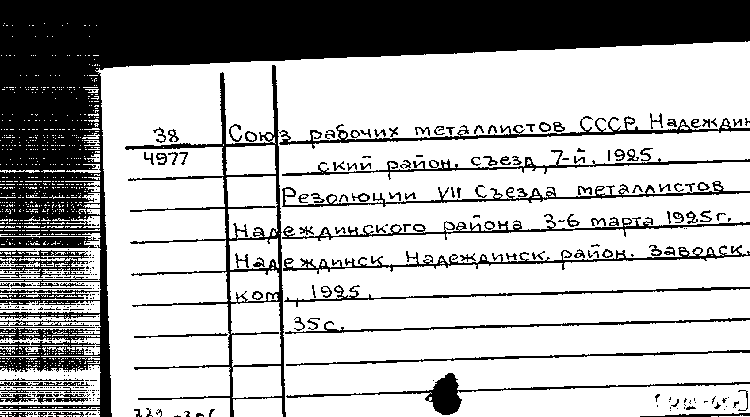 38 Союз рабочих металлистов СССР. Надеждин
4977 ский район. съезд, 7-й. 1925.
Резолюции VII Съезда металлистов
Надеждинского района 3-6 марта 1925 г.
Надеждинск, Надеждинск. район. заводск.
ком., 1925.
35 с.